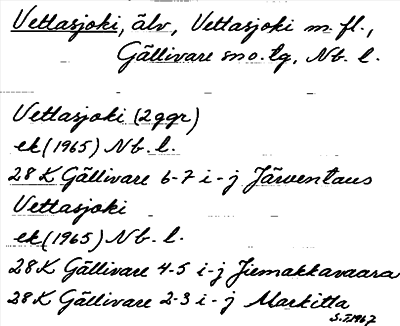 Vettasjoki, älv, Vettasjoki m. fl.,
Gällivare sno. lg, Nb. l.
Vettasjoki (2ggr)
ek (1965) Nb. l.
28 K Gällivare 6-7 i-j Järventaus
Vettasjoki
ek (1965) Nb. l.
28K Gällivare 4-5 i-j Jiemakkavaara
28K Gällivare 2-3 i-j Markitta
S.T.1967